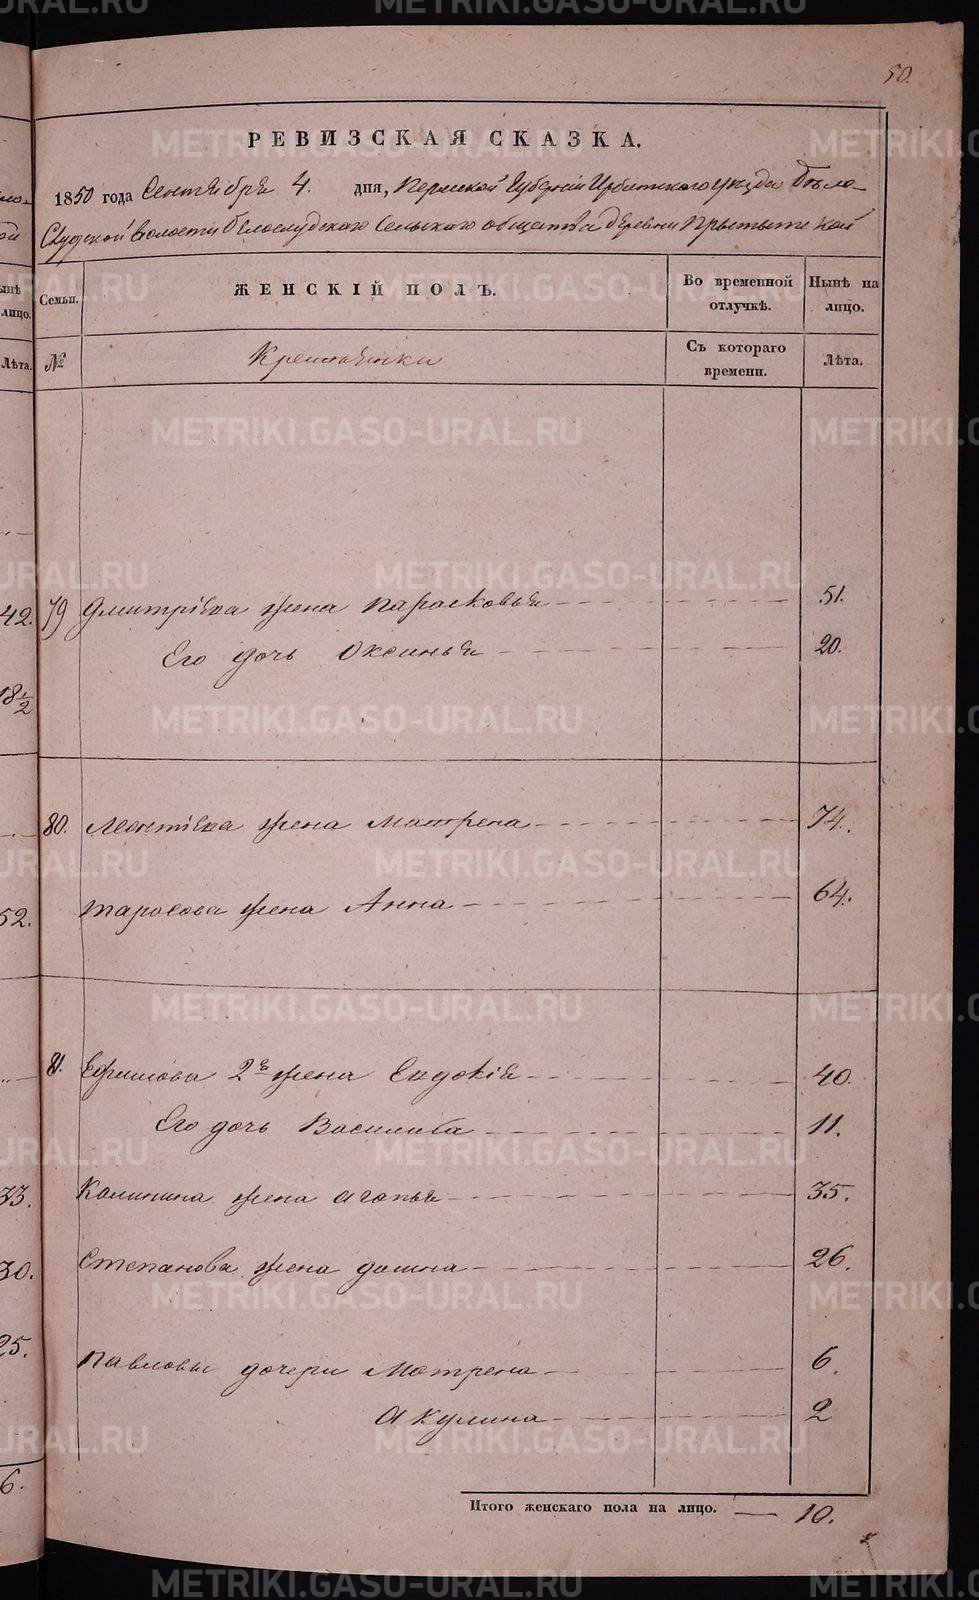 METRIKI.GASO-URAL.RU
50.
РЕВИЗСКАЯ СКАЗКА.
1850 года Сентября 4. дня, Пермской Губернии Ирбитскаго уезда Бѣло-
Слудской волости Бѣлослудскаго Сельскаго общества деревни
Семьи.
ЖЕНСКІЙ ПОЛЪ.
Во временной отлучкѣ.
Нынѣ на лицо.
№
Крестьянки
Съ котораго времени.
Лѣта.
42. 79 Дмитріева жена Парасковья 51.
Его дочь Оксинья 20.
18 1/2
80. Леонтіева жена Матрена 74.
52. Тарасова жена Анна 64.
81. Ефимова 2я жена Евдокія 40.
Его дочь Василиса 11.
33. Калинина жена Агапья 35.
30. Степанова жена Домна 26.
25. Павловы дочери Матрена 6.
Акулина 2
6.
Итого женскаго пола на лицо. — 10.